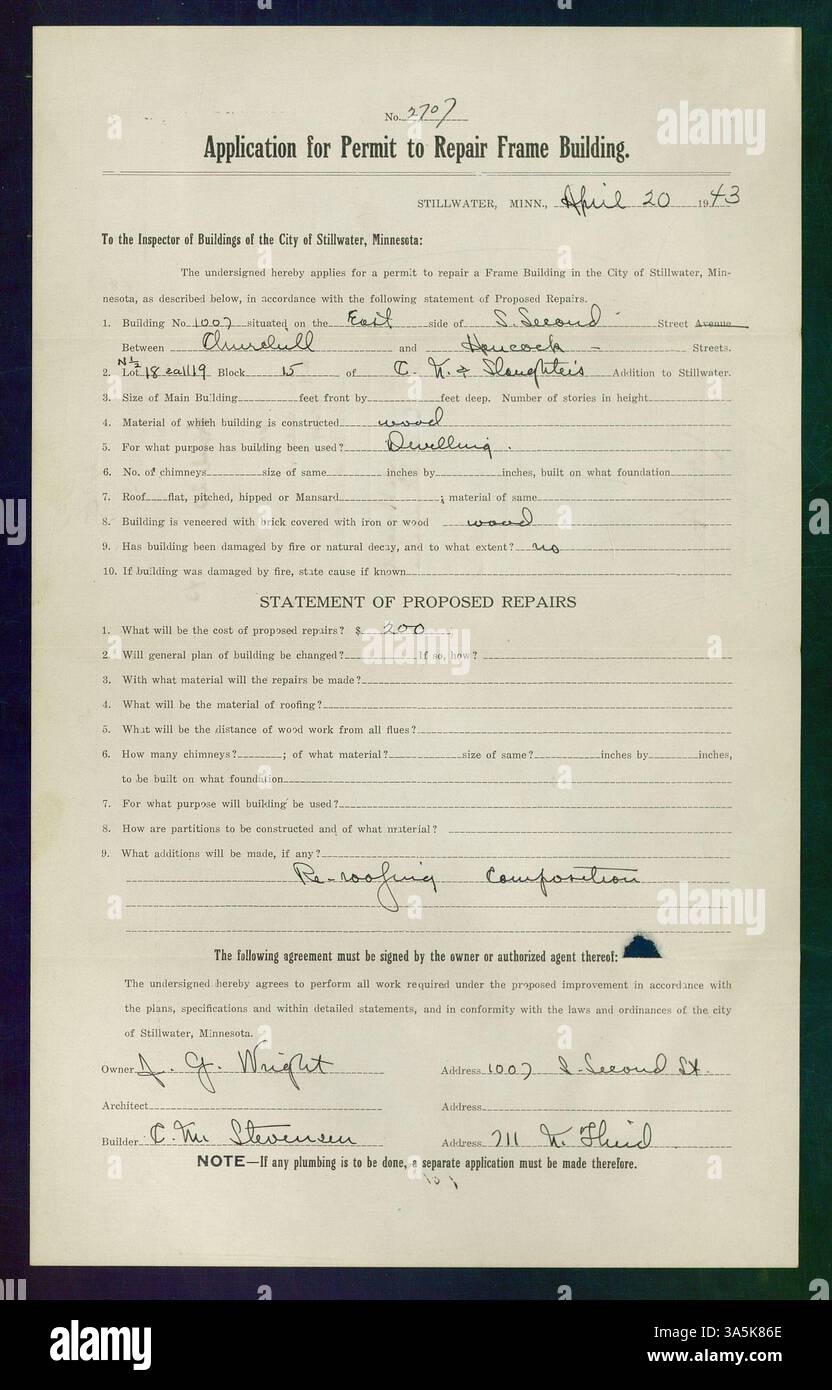 No. 2707
Application for Permit to Repair Frame Building.
STILLWATER, MINN., April 20 1943
To the Inspector of Buildings of the City of Stillwater, Minnesota:
The undersigned hereby applies for a permit to repair a Frame Building in the City of Stillwater, Min-
nesota, as described below, in accordance with the following statement of Proposed Repairs.
1. Building No. 1007 situated on the East side of S. Second Street Avenue
Between Churchill and Hancock Streets.
N 1/2
2. Lot 18 & all 19 Block 15 of C. & Slaughter's Addition to Stillwater.
3. Size of Main Building feet front by feet deep. Number of stories in height
4. Material of which building is constructed wood
5. For what purpose has building been used? Dwelling.
6. No. of chimneys size of same inches by inches, built on what foundation
7. Roof flat, pitched, hipped or Mansard ; material of same
8. Building is veneered with brick covered with iron or wood wood
9. Has building been damaged by fire or natural decay, and to what extent? no
10. If building was damaged by fire, state cause if known
STATEMENT OF PROPOSED REPAIRS
1. What will be the cost of proposed repairs? $ 200
2. Will general plan of building be changed? If so, how?
3. With what material will the repairs be made?
4. What will be the material of roofing?
5. What will be the distance of wood work from all flues?
6. How many chimneys? ; of what material? size of same? inches by inches,
to be built on what foundation
7. For what purpose will building be used?
8. How are partitions to be constructed and of what material?
9. What additions will be made, if any?
Re-roofing Composition
The following agreement must be signed by the owner or authorized agent thereof:
The undersigned hereby agrees to perform all work required under the proposed improvement in accordance with
the plans, specifications and within detailed statements, and in conformity with the laws and ordinances of the city
of Stillwater, Minnesota.
Owner J. G. Wright Address 1007 S. Second St.
Architect Address
Builder C. M. Stevensen Address 711 N. Third
NOTE—If any plumbing is to be done, a separate application must be made therefore.
alamy
Image ID: 3A5K86E
www.alamy.com